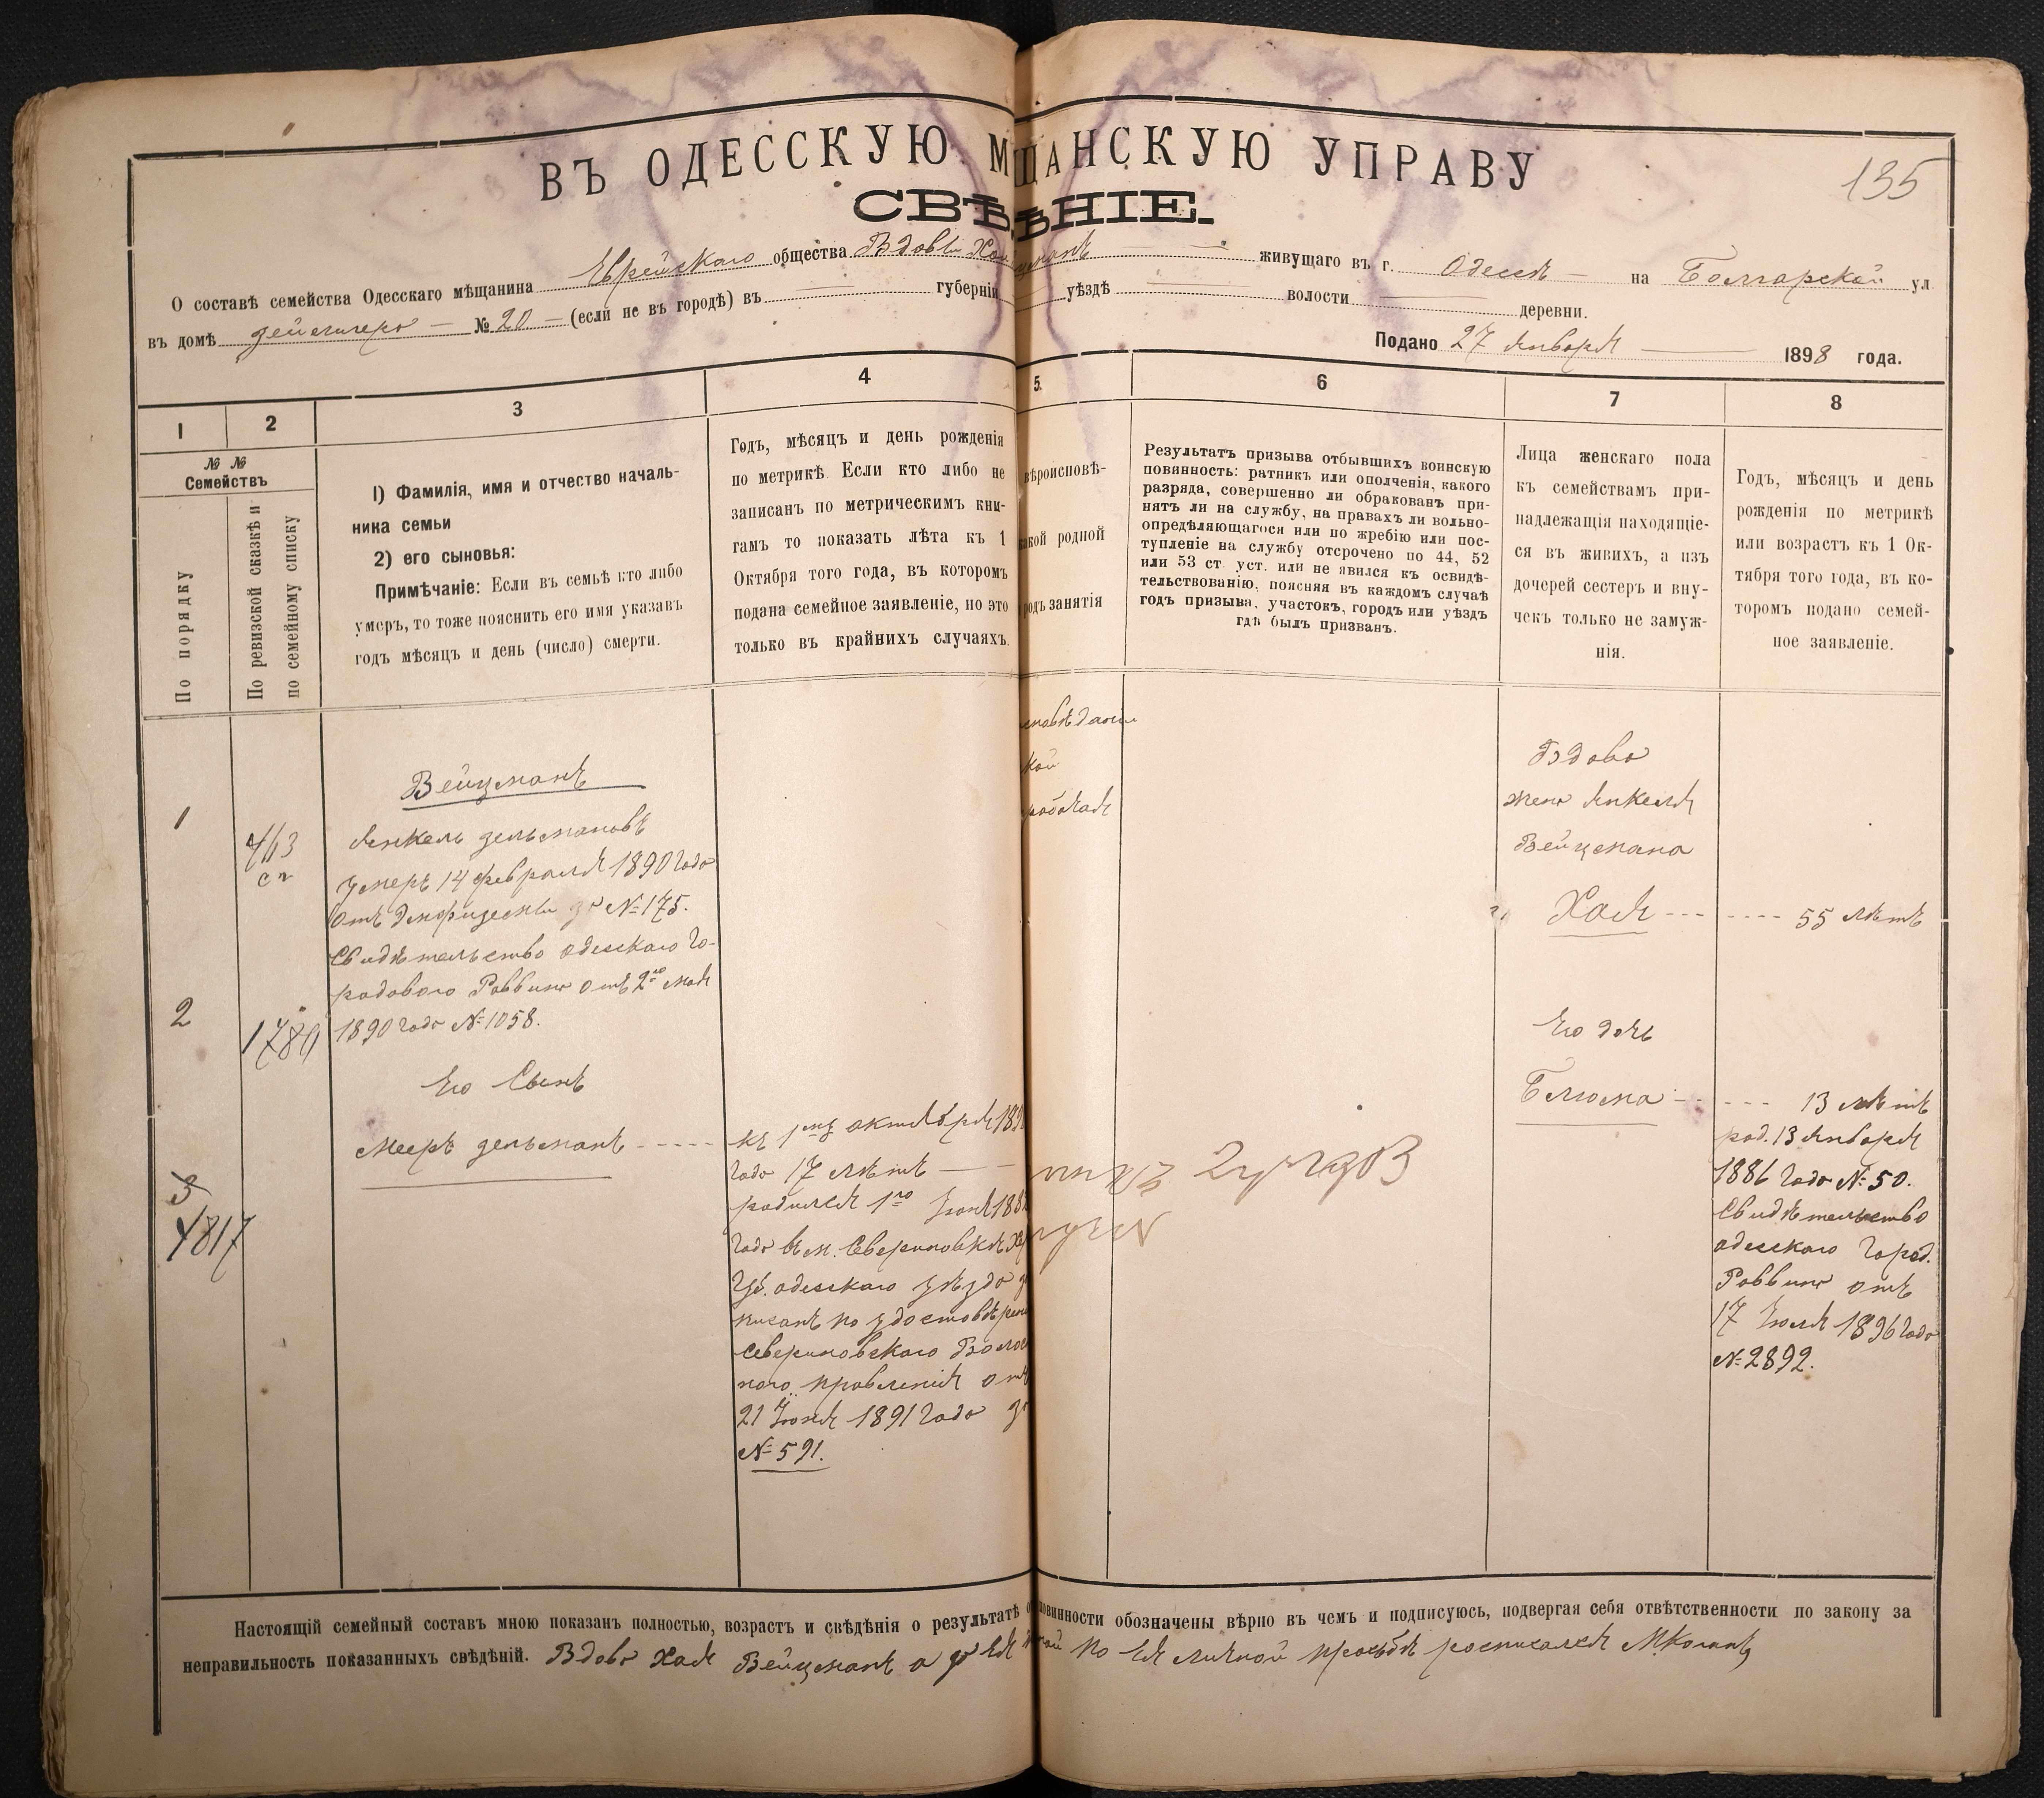 135
ВЪ ОДЕССКУЮ М ЩАНСКУЮ УПРАВУ
СВѢ ѢНІЕ.
О составѣ семейства Одесскаго мѣщанина Еврейскаго общества Вдовы Хаи живущаго въ г. Одессѣ на Болгарской ул
въ домѣ № 20 (если не въ городѣ) въ губерніи уѣздѣ волости деревни.
Подано 27 Января 1898 года.
1 2 3 4 5. 6 7 8
№ № Семействъ
По порядку
По ревизской сказкѣ и
по семейному списку
1) Фамилія, имя и отчество началь-
ника семьи
2) его сыновья:
Примѣчаніе: Если въ семьѣ кто либо
умеръ, то тоже пояснить его имя указавъ
годъ мѣсяцъ и день (число) смерти.
Годъ, мѣсяцъ и день рожденія
по метрикѣ. Если кто либо не
записанъ по метрическимъ кни-
гамъ то показать лѣта къ 1
Октября того года, въ которомъ
подана семейное заявленіе, но это
только въ крайнихъ случаяхъ.
вѣроисповѣ-
родной
занятія
Результатъ призыва отбывшихъ воинскую
повинность: ратникъ или ополченія, какого
разряда, совершенно ли обракованъ при-
нятъ ли на службу, на правахъ ли вольно-
опредѣляющагося или по жребію или пос-
тупленіе на службу отсрочено по 44, 52
или 53 ст уст. или не явился къ освидѣ-
тельствованію, поясняя въ каждомъ случаѣ
годъ призыва, участокъ, городъ или уѣздъ
гдѣ былъ призванъ.
Лица женскаго пола
къ семействамъ при-
надлежащія находящіе-
ся въ живихъ, а изъ
дочерей сестеръ и вну-
чекъ только не замуж-
нія.
Годъ, мѣсяцъ и день
рожденія по метрикѣ
или возрастъ къ 1 Ок-
тября того года, въ ко-
торомъ подано семей-
ное заявленіе.
1
2
1780
3
4817
Вейцманъ
Янкель Зельмановъ
умеръ 14 февраля 1890 года
отъ Эмфиземы за № 175.
Свидѣтельство одесскаго Го-
родового Раввина отъ 2го мая
1890 года № 1058.
Его Сынъ
Мееръ Зельманъ
къ 1му октября
года 17 лѣтъ
родился 1го Іюня
года въ м. Севериновкѣ
Губ. одесскаго уѣзда
писанъ по
Севериновскаго
ного правленія отъ
21 Іюня 1891 года за
№ 591.
Вдова
жена Янкеля
Вейцмана
Хая 55 лѣтъ
Его дочь
Блюма 13 лѣтъ
род. 13 Января
1886 года № 50.
Свидѣтельство
одесскаго Город.
Раввина отъ
17 Іюля 1896 года
№ 2892.
Настоящій семейный составъ мною показанъ полностью, возрастъ и свѣдѣнія о результатѣ повинности обозначены вѣрно въ чемъ и подписуюсь, подвергая себя отвѣтственности по закону за
неправильность показанныхъ свѣдѣній. Вдова Хая Вейцманъ а за нея по ея личной просьбѣ росписался